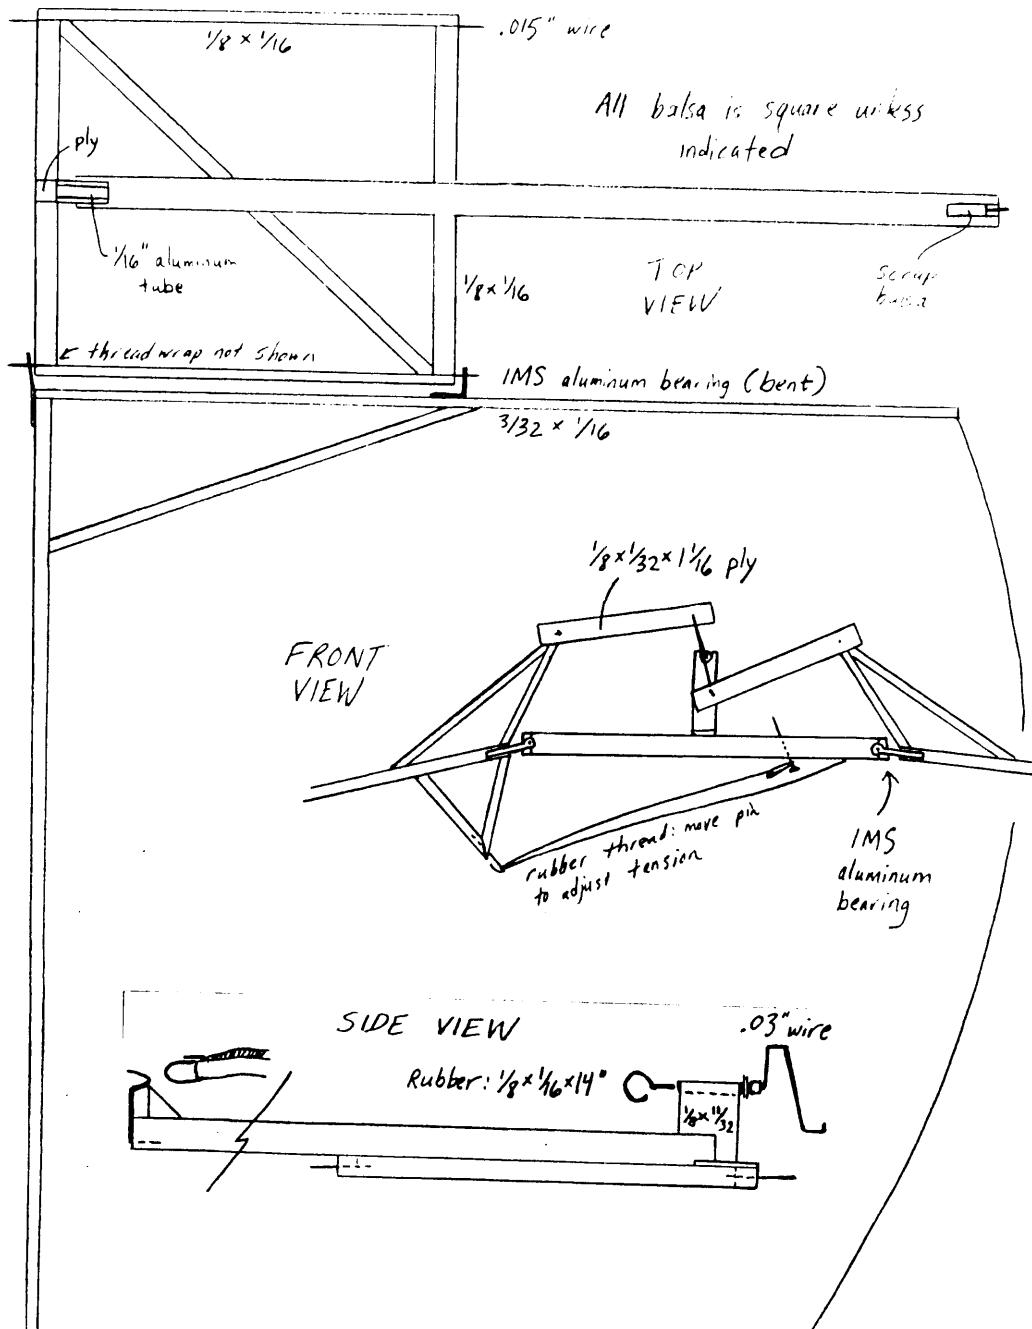 .015" wire
1/8 x 1/16
All balsa is square unless
indicated
ply
1/16" aluminum
tube
TOP
VIEW
scrap
balsa
1/8 x 1/16
thread wrap not shown
IMS aluminum bearing (bent)
3/32 x 1/16
1/8 x 1/32 x 1 1/16 ply
FRONT
VIEW
rubber thread: move pin
to adjust tension
IMS
aluminum
bearing
SIDE VIEW
.03" wire
Rubber: 1/8 x 1/16 x 14"
1/8 x 11/32